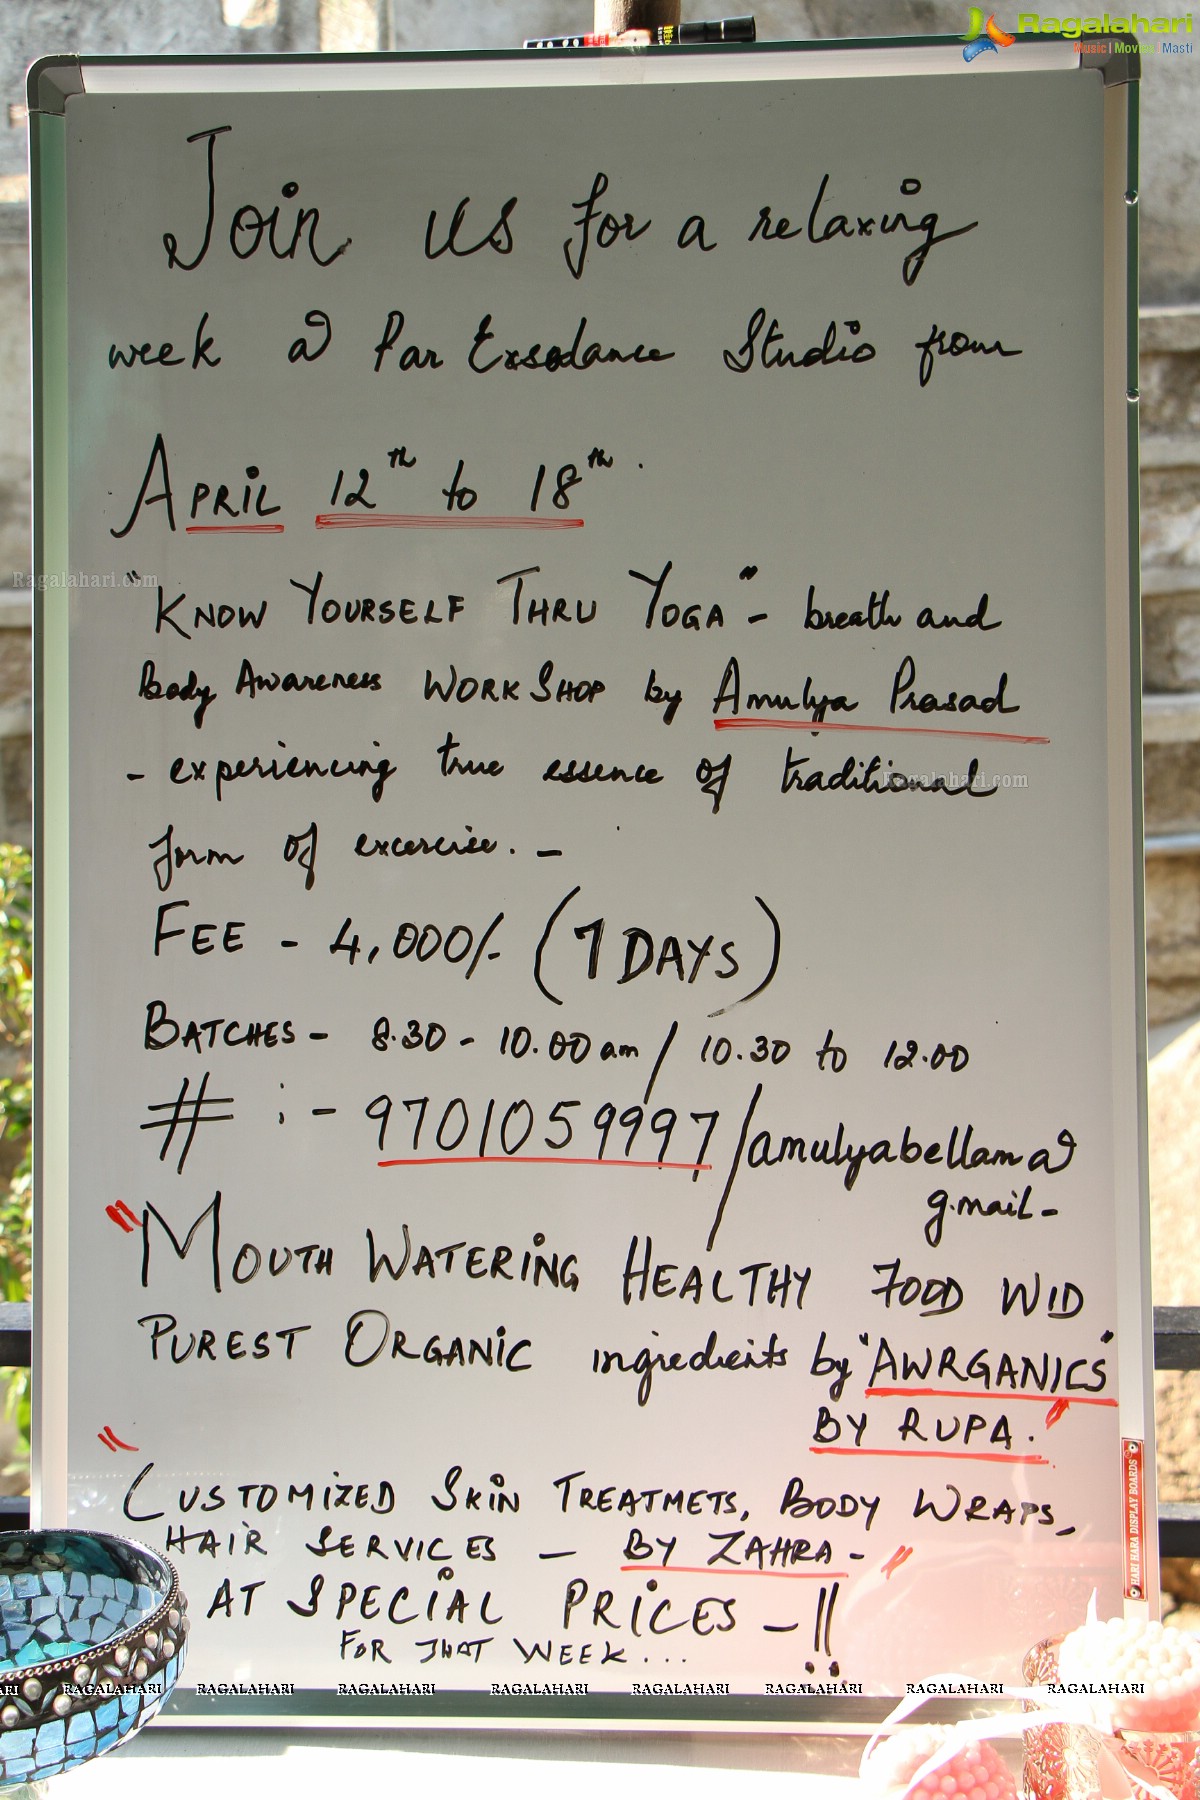 Ragalahari
Music | Movies | Masti
Join us for a relaxing
week @ Par Exsodance Studio from
APRIL 12th to 18th.
Ragalahari.com
"KNOW YOURSELF THRU YOGA" - breath and
Body Awareness WORKSHOP by Amulya Prasad
- experiencing true essence of traditional
Ragalahari.com
form of excercise. -
FEE - 4,000/- (7 DAYS)
BATCHES - 8.30 - 10.00 am / 10.30 to 12.00
# :- 9701059997 / amulyabellam@
g.mail -
"MOUTH WATERING HEALTHY FOOD WID
PUREST ORGANIC ingredients by "AWRGANICS"
BY RUPA."
"CUSTOMIZED SKIN TREATMETS, BODY WRAPS,
HAIR SERVICES - BY ZAHRA - "
AT SPECIAL PRICES - !!
FOR THAT WEEK...
HARI HARA DISPLAY BOARDS
ARI RAGALAHARI RAGALAHARI RAGALAHARI RAGALAHARI RAGALAHARI RAGALAHARI RAGALAHARI RAGALAHARI